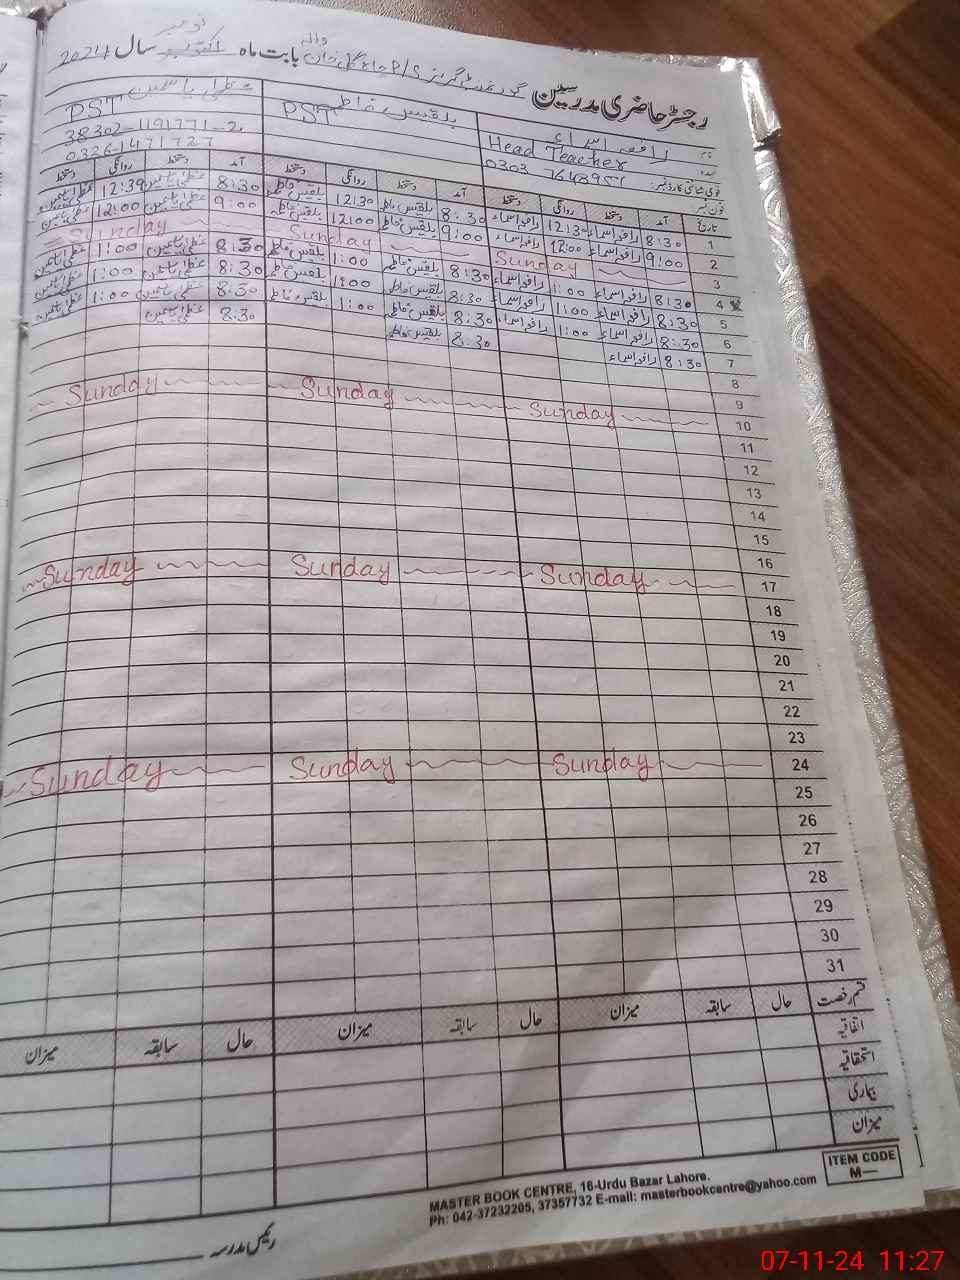 نومبر
رجسٹر حاضری مدرسین گورنمنٹ گرلز P/S چاہ گل خان والہ بابت ماہ اکتوبر سال 2024
نام رافعہ اسماء بلقیس فاطمہ عظمیٰ یاسمین
عہدہ Head Teacher PST PST
قومی شناختی کارڈ نمبر: 38302-1191771-2
فون نمبر 0326-1471727
تاریخ آمد دستخط روانگی دستخط آمد دستخط روانگی دستخط آمد دستخط روانگی دستخط
1 8:30 رافعہ اسماء 12:3 رافعہ اسماء 8:30 بلقیس فاطمہ 12:30 بلقیس فاطمہ 8:30 عظمیٰ یاسمین 12:30 عظمیٰ یاسمین
2 9:00 رافعہ اسماء 12:00 رافعہ اسماء 9:00 بلقیس فاطمہ 12:00 بلقیس فاطمہ 9:00 عظمیٰ یاسمین 12:00 عظمیٰ یاسمین
3 Sunday Sunday Sunday
4 8:30 رافعہ اسماء 1:00 رافعہ اسماء 8:30 بلقیس فاطمہ 1:00 بلقیس فاطمہ 8:30 عظمیٰ یاسمین 1:00 عظمیٰ یاسمین
5 8:30 رافعہ اسماء 1:00 رافعہ اسماء 8:30 بلقیس فاطمہ 1:00 بلقیس فاطمہ 8:30 عظمیٰ یاسمین 1:00 عظمیٰ یاسمین
6 8:30 رافعہ اسماء 1:00 رافعہ اسماء 8:30 بلقیس فاطمہ 1:00 بلقیس فاطمہ 8:30 عظمیٰ یاسمین 1:00 عظمیٰ یاسمین
7 8:30 رافعہ اسماء 8:30 بلقیس فاطمہ 8:30 عظمیٰ یاسمین
8
9
10 Sunday Sunday Sunday
11
12
13
14
15
16
17 Sunday Sunday Sunday
18
19
20
21
22
23
24 Sunday Sunday Sunday
25
26
27
28
29
30
31
قسم رخصت حال سابقہ میزان حال سابقہ میزان حال سابقہ میزان
اتفاقیہ
استحقاقیہ
بیماری
میزان
ITEM CODE
M—
MASTER BOOK CENTRE, 16-Urdu Bazar Lahore.
Ph: 042-37232205, 37357732 E-mail: masterbookcentre@yahoo.com
رئیس مدرسہ
07-11-24 11:27